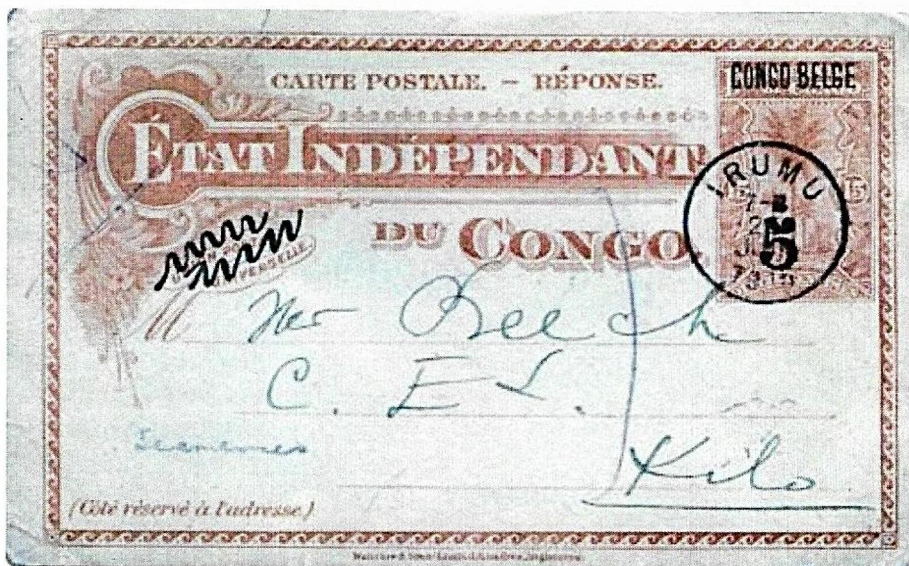 CARTE POSTALE. – RÉPONSE.
CONGO BELGE
ÉTAT INDÉPENDANT
DU CONGO.
IRUMU
5
15
Beech
C. E.
Kilo
(Côté réservé à l'adresse.)